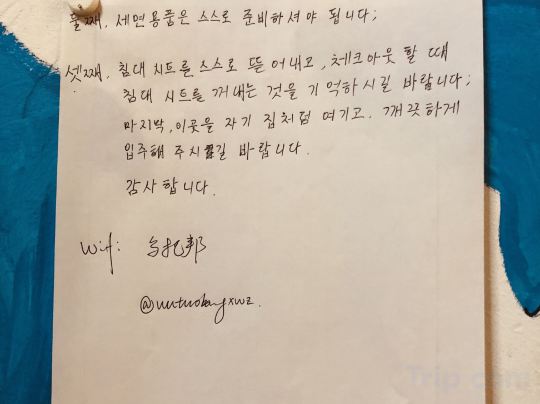 둘째, 세면용품은 스스로 준비하셔야 됩니다;
셋째, 침대 시트를 스스로 뜯어내고, 체크아웃 할 때
침대 시트를 꺼내는 것을 기억하시길 바랍니다;
마지막, 이곳을 자기 집처럼 여기고, 깨끗하게
입주해 주시길 바랍니다.
감사합니다.
Wifi: 乌托邦
Trip.com